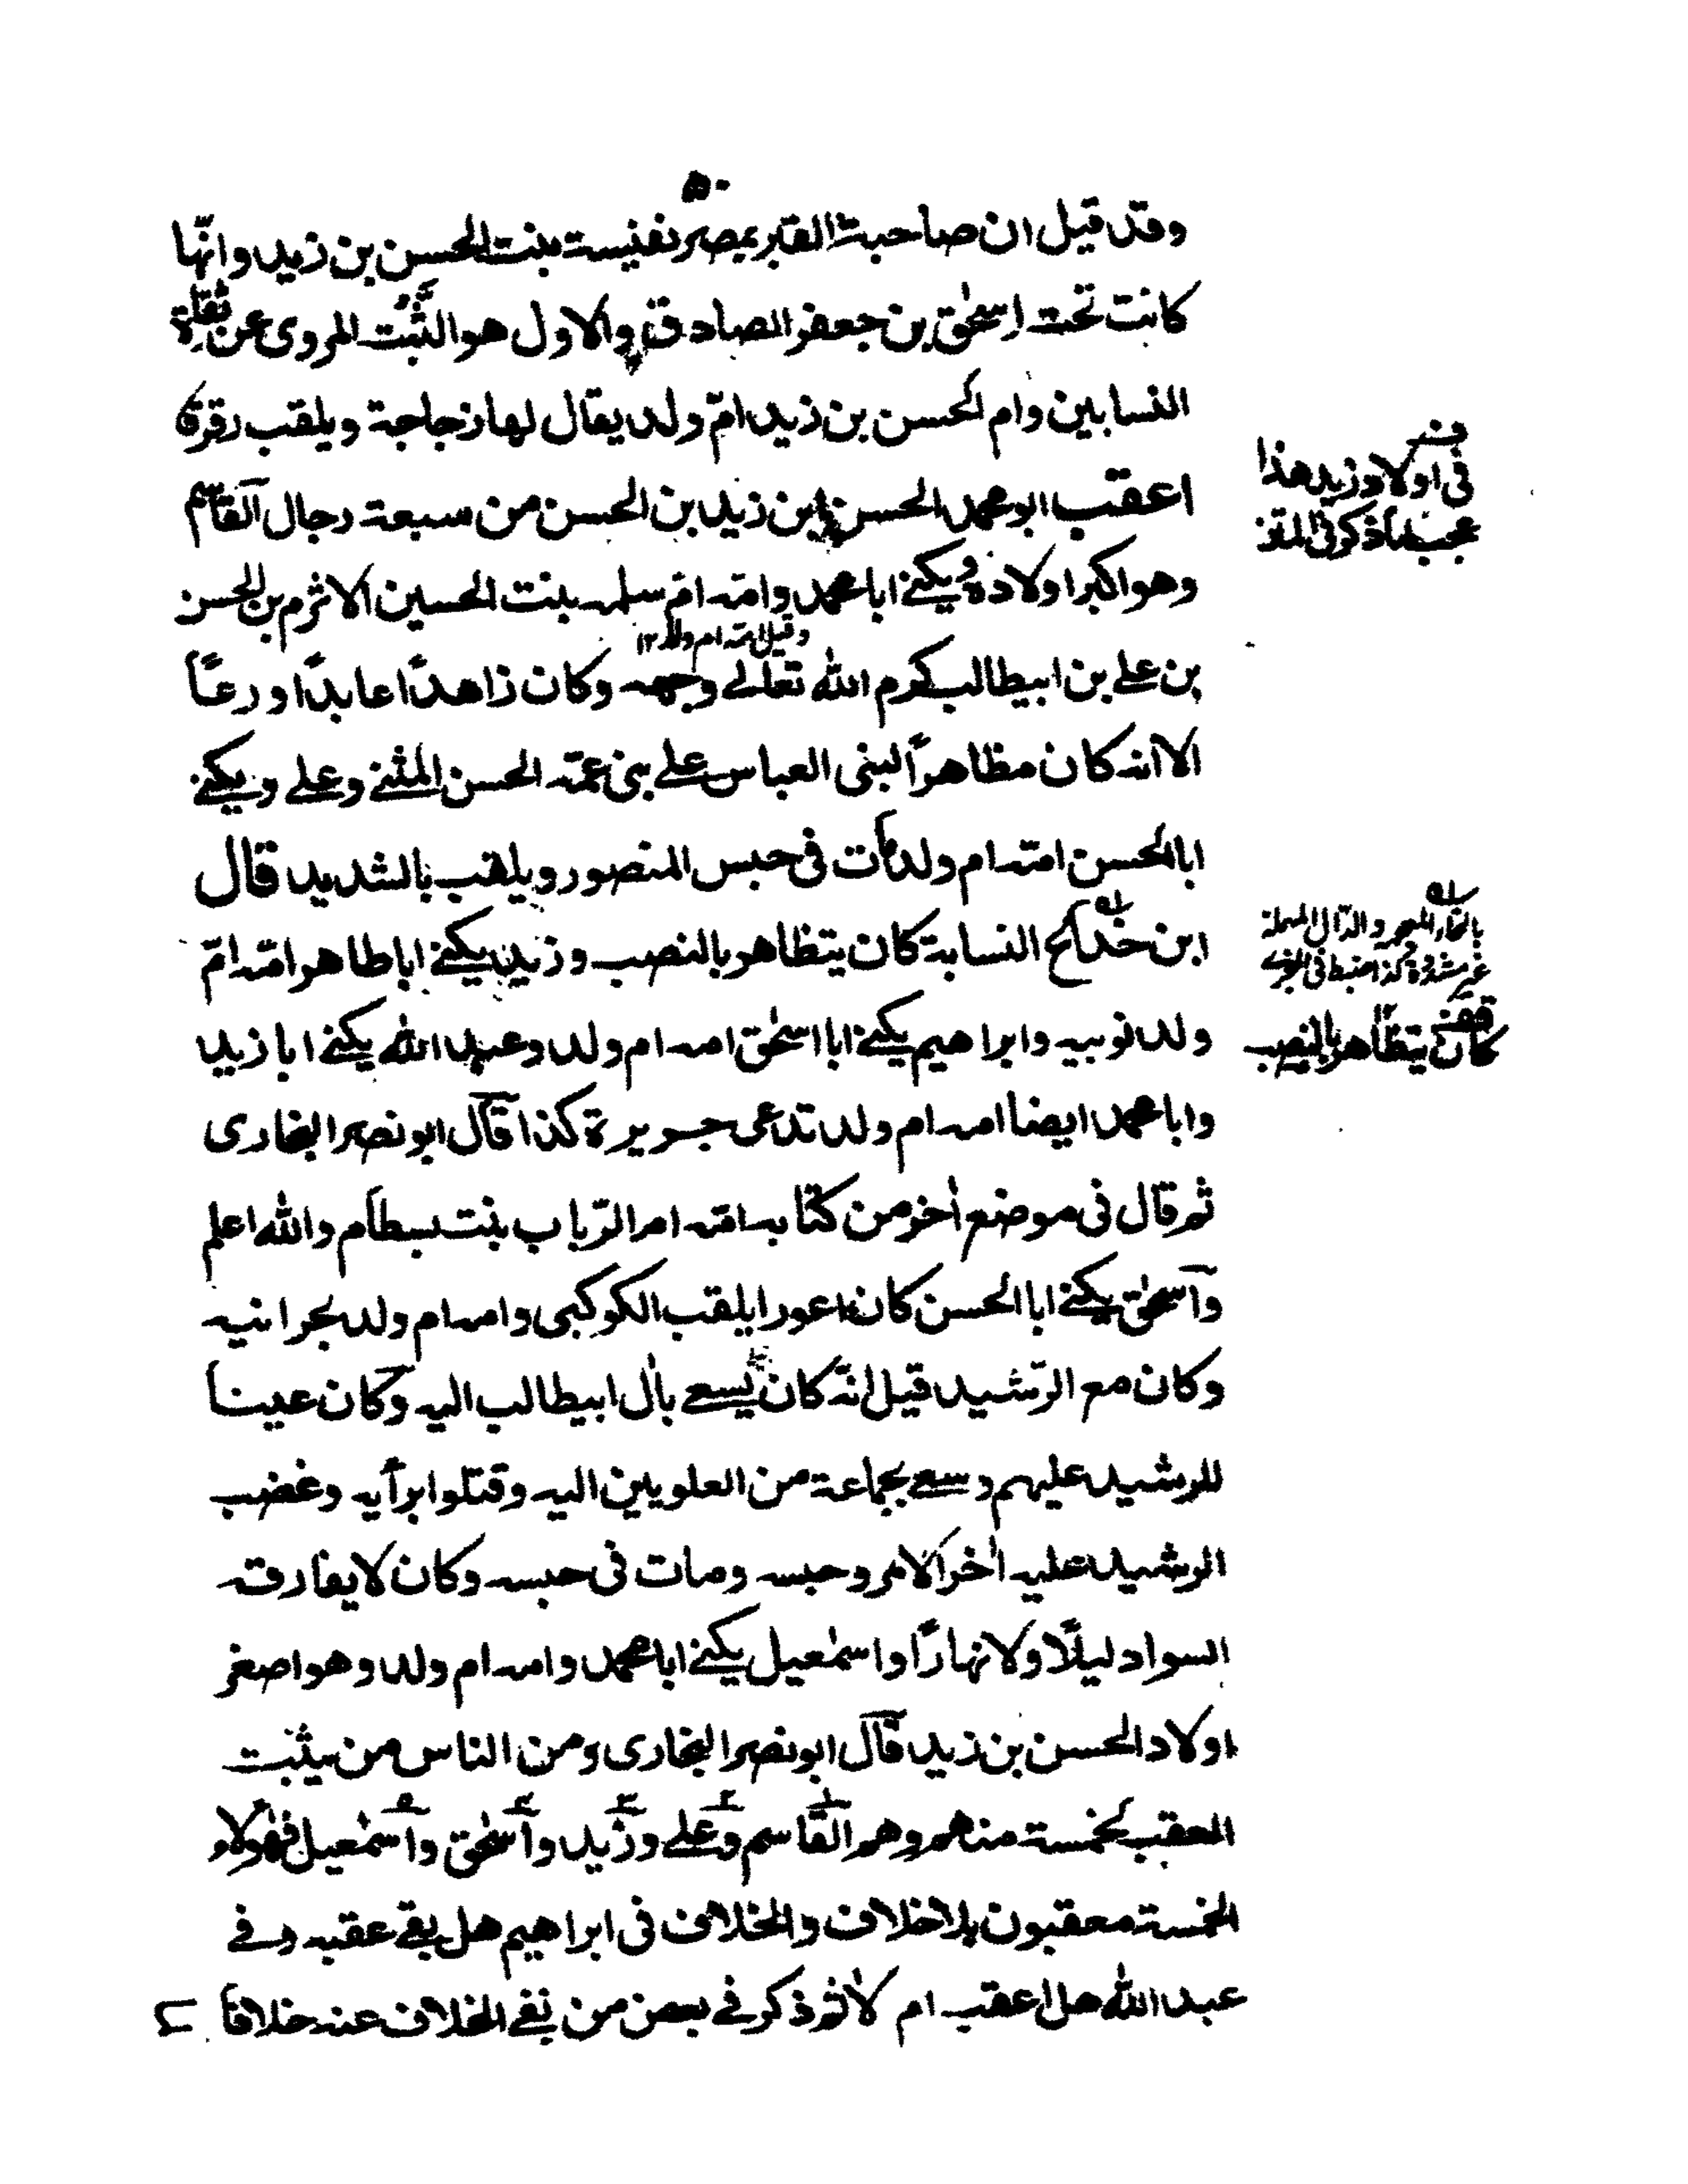 ٥٠
وقد قيل ان صاحبة القبر بمصر نفيسة بنت الحسن بن زيد وانّها
كانت تحت اسحٰق بن جعفر الصادق والاول هو الثَّبْت المروى عن ثقاة
النسابين وام الحسن بن زيد امّ ولد يقال لها زجاجة ويلقب رقرق
اعقب ابو محمد الحسن بن زيد بن الحسن من سبعة رجال القاسم
وهو اكبر اولاده ويكنے ابا محمد وامّه امّ سلمه بنت الحسين الاثرم بن الحسن
وقيل امّه ام ولد ١٢
بن علے بن ابيطالب كرم الله تعالے وجهه وكان زاهدًا عابدًا ورعًا
الا انه كان مظاهراً لبنى العباس علے بنى عمّه الحسن المثنے وعلے ويكنے
ابا الحسن امّه ام ولد مات فى حبس المنصور ويلقب بالشديد قال
ابن خداع النسابة كان يتظاهر بالنصب وزيد يكنے ابا طاهر امّه امّ
ولد نوبيه وابراهيم يكنے ابا اسحٰق امه ام ولد وعبد الله يكنے ابا زيد
وابا محمد ايضا امه ام ولد تدعى جريرة كذا قال ابو نصر البخارى
ثم قال فى موضع اٰخر من كتابه امّه ام الرّباب بنت بسطام والله اعلم
واسحٰق يكنے ابا الحسن كان اعور ايلقب الكوكبى وامه ام ولد بحرانيه
وكان مع الرّشيد قيل انّه كان يسعے باٰل ابيطالب اليه وكان عيناً
للرشيد عليهم وسعے بجماعة من العلويين اليه وقتلوا برأيه وغضب
الرشيد عليه اٰخر الامر وحبسه ومات فى حبسه وكان لا يفارقه
السواد ليلًا ولا نهارًا واسمٰعيل يكنے ابا محمد وامه ام ولد وهو اصغر
اولاد الحسن بن زيد قال ابو نصر البخارى ومن الناس من يثبت
العقب لخمسة منهم وهم القاسم وعلے وزيد واسحٰق واسمٰعيل فهٰولاء
الخمسة معقبون بلا خلاف والخلاف فى ابراهيم هل بقے عقبه وفے
عبد الله هل اعقب ام لا ثم ذكر فے بعض من نفے الخلاف عنه خلافاً
فى اولاد زيد هذا
عجب لما ذكر فى
بالخاء المعجمه والدّال المهملة
غير مشدودة كذا ضبط فى
كان يتظاهر بالنصب